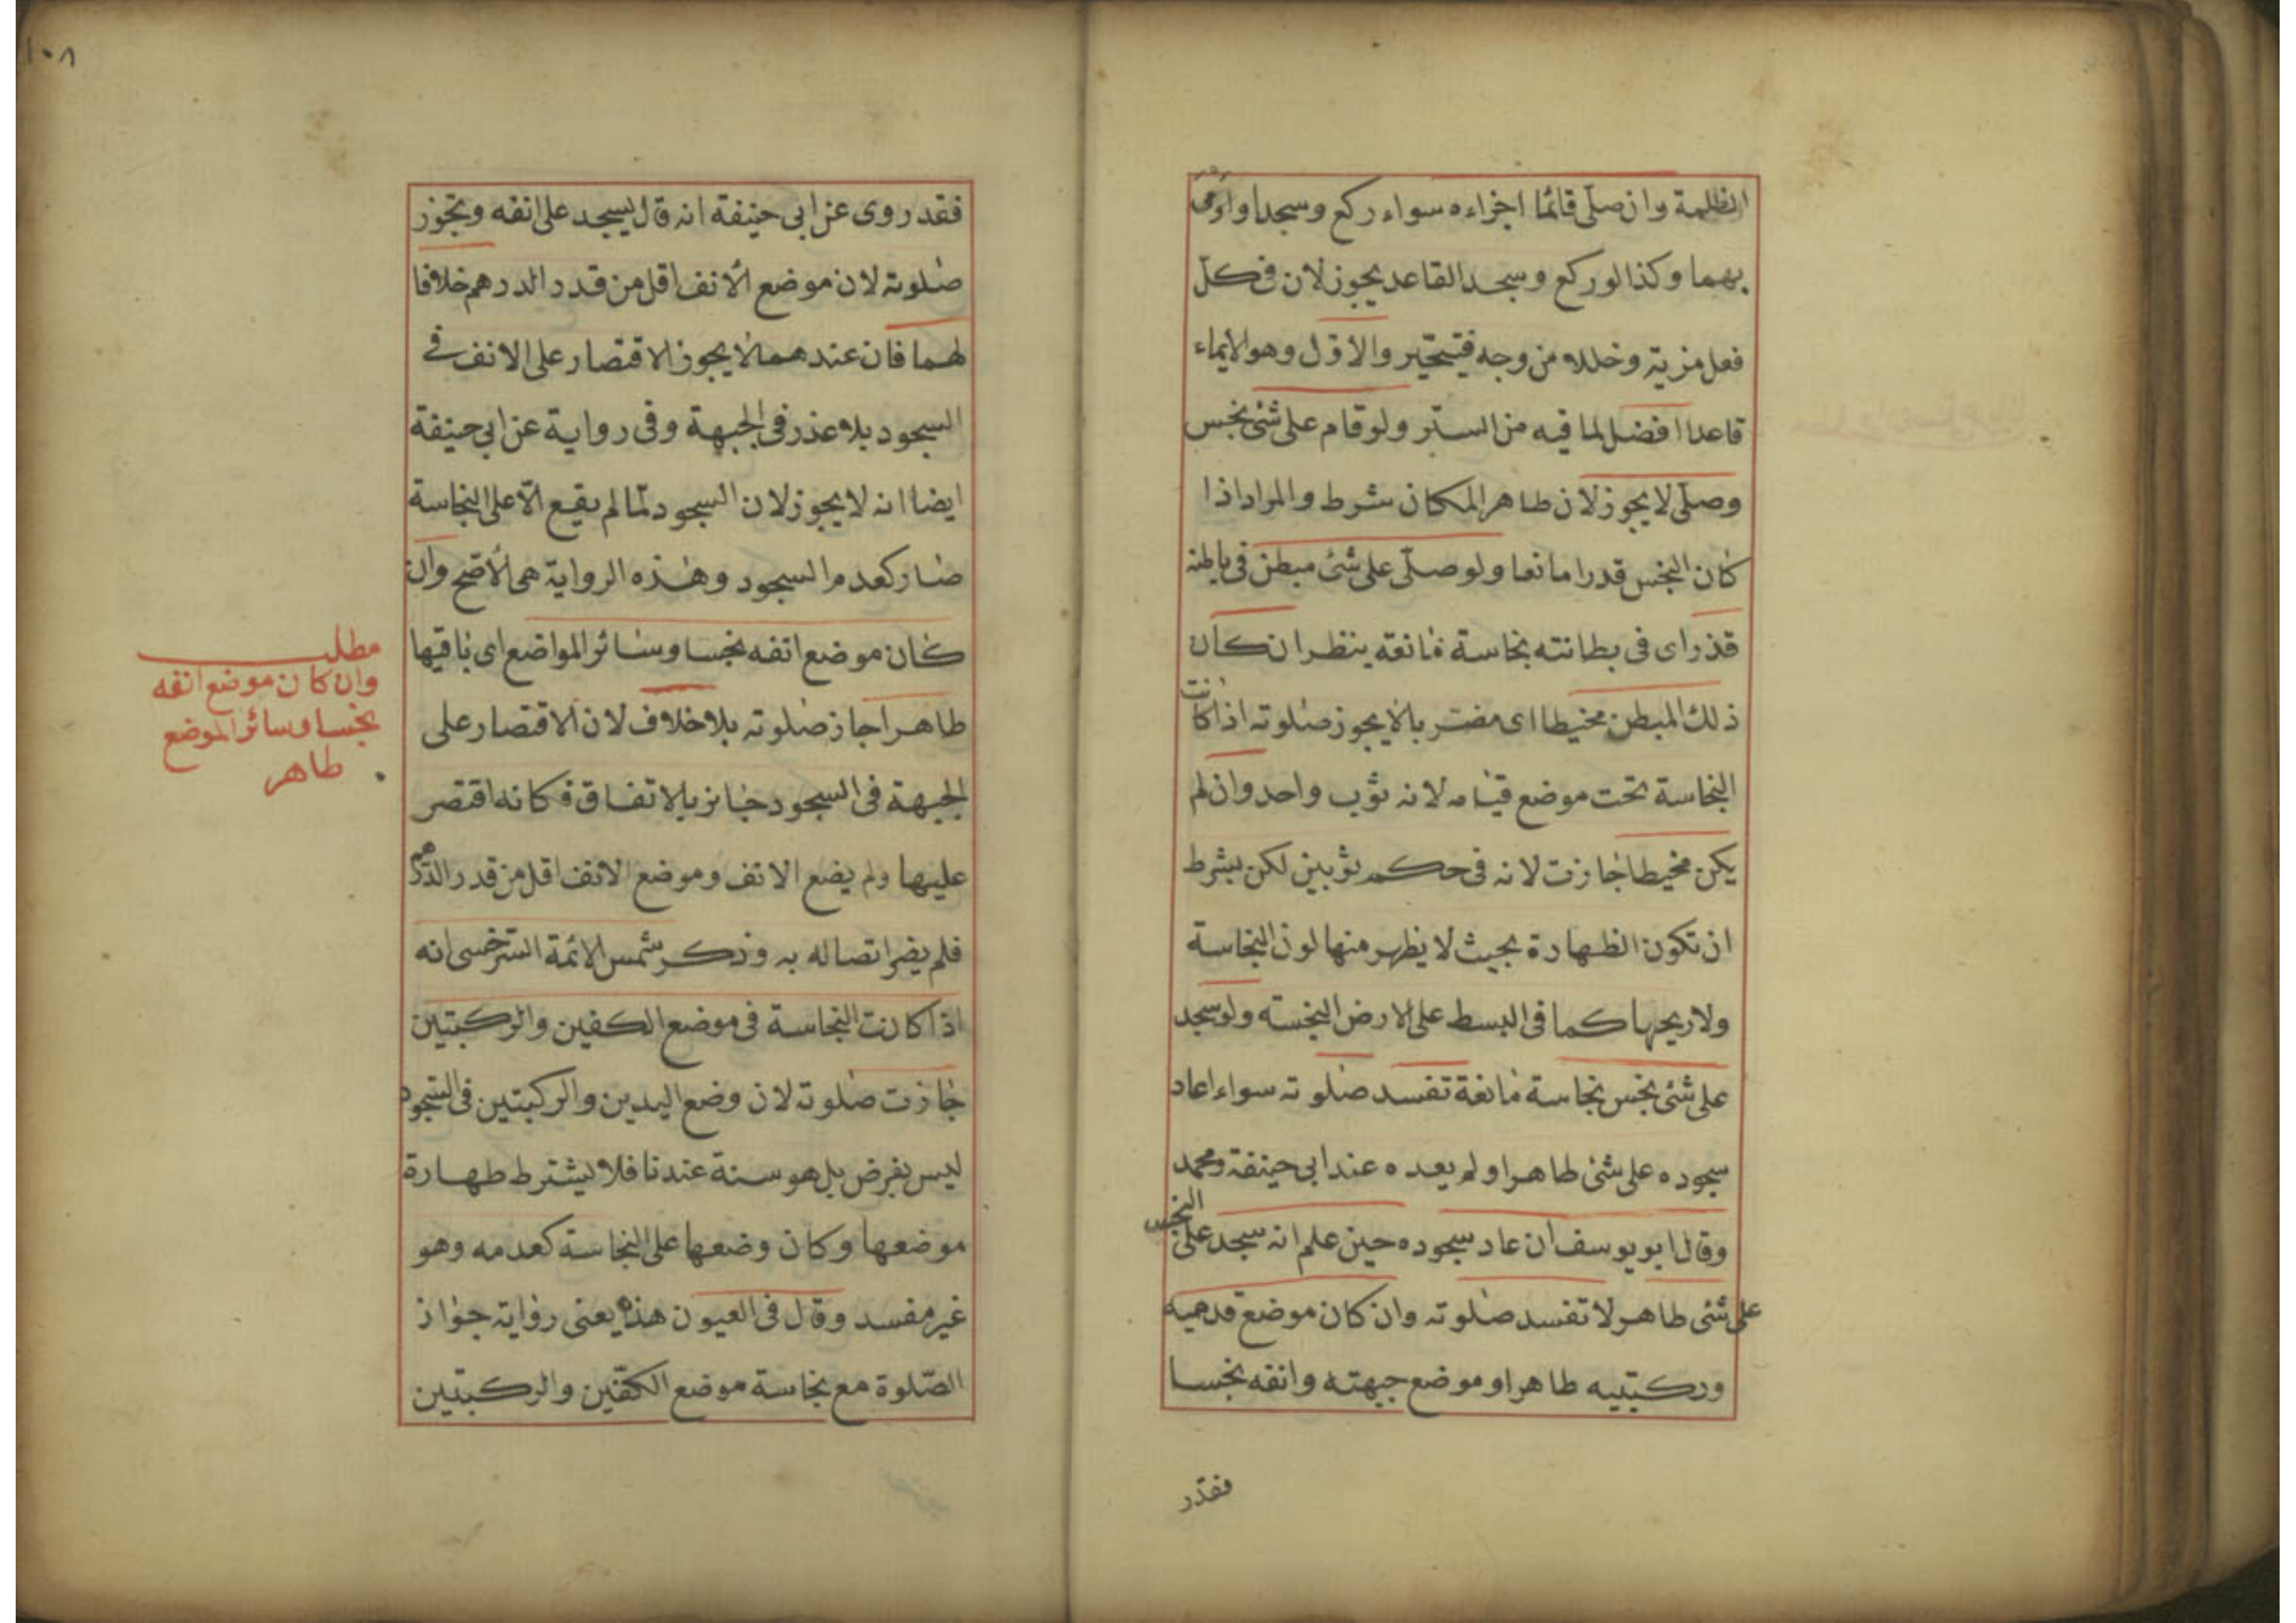 الظلمة وان صلّى قائما اجزاءه سواء ركع وسجد او اومى
بهما وكذا لو ركع وسجد القاعد يجوز لان فى كلّ
فعل مزية وخللا من وجه فيتخيّر والاوّل وهو الايماء
قاعدا افضل لما فيه من الستر ولو قام على شئ نجس
وصلّى لا يجوز لان طاهر المكان شرط والمراد اذا
كان النجس قدرا مانعا ولو صلّى على شئ مبطن فى باطنه
قذر اى فى بطانته نجاسة مانعة ينظر ان كان
ذلك المبطن مخيطا اى مضربا لا يجوز صلوته اذا كانت
النجاسة تحت موضع قيامه لانه ثوب واحد وان لم
يكن مخيطا جازت لانه فى حكم ثوبين لكن بشرط
ان تكون الظهارة بحيث لا يظهر منها لون النجاسة
ولا ريحها كما فى البسط على الارض النجسة ولو سجد
على شئ نجس نجاسة مانعة تفسد صلوته سواء اعاد
سجوده على شئ طاهر او لم يعده عند ابى حنيفة ومحمد
وقال ابو يوسف ان عاد سجوده حين علم انه سجد على النجس
على شئ طاهر لا تفسد صلوته وان كان موضع قدميه
وركبتيه طاهرا وموضع جبهته وانفه نجسا
فقد
١٠٨
فقد روى عن ابى حنيفة انه قال يسجد على انفه وتجوز
صلوته لان موضع الانف اقل من قدر الدرهم خلافا
لهما فان عندهما لا يجوز الاقتصار على الانف فى
السجود بلا عذر فى الجبهة وفى رواية عن ابى حنيفة
ايضا انه لا يجوز لان السجود لمّا لم يقع الّا على النجاسة
صار كعدم السجود وهذه الرواية هى الاصح وان
كان موضع انفه نجسا وسائر المواضع اى باقيها
طاهرا جاز صلوته بلا خلاف لان الاقتصار على
الجبهة فى السجود جايز بالاتفاق فكانه اقتصر
عليها ولم يضع الانف وموضع الانف اقل من قدر الدرهم
فلم يضر اتصاله به وذكر شمس الائمة السرخسى انه
اذا كانت النجاسة فى موضع الكفين والركبتين
جازت صلوته لان وضع اليدين والركبتين فى السجود
ليس بفرض بل هو سنة عندنا فلا يشترط طهارة
موضعها وكان وضعها على النجاسة كعدمه وهو
غير مفسد وقال فى العيون هذه يعنى رواية جواز
الصّلوة مع نجاسة موضع الكفّين والركبتين
مطلب
وان كان موضع انفه
نجسا وسائر الموضع
طاهر